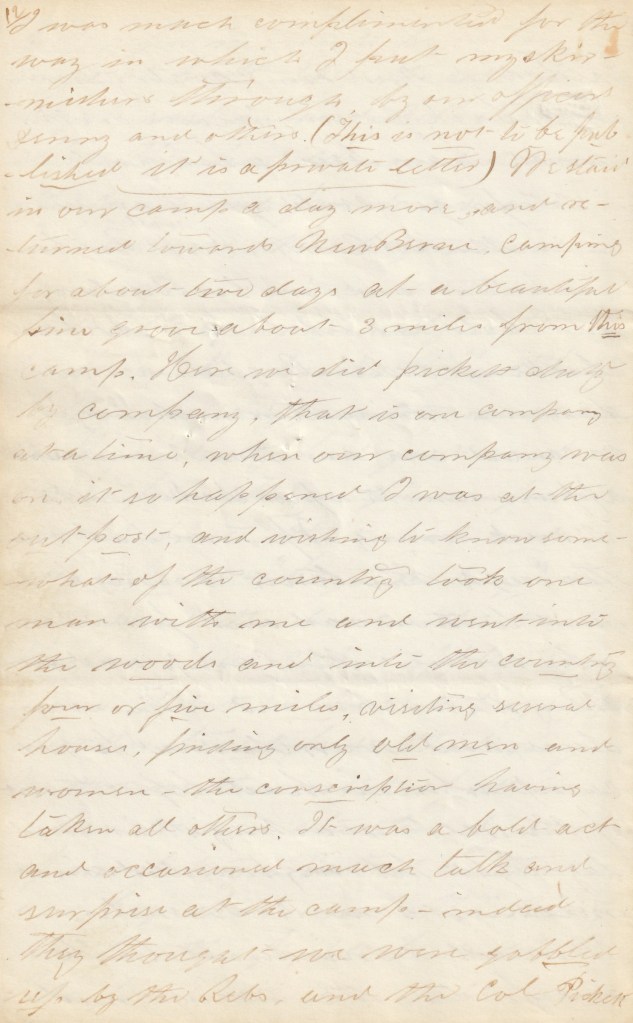 12
I was much complimented for the
way in which I put my skir-
-mishers through, by our officer
and others. (This is not to be pub
-lished it is a private letter) We staid
in our camp a day more, and re-
-turned towards NewBerne. Camping
for about two days at a beautiful
pine grove about 3 miles from this
camp. Here we did picket duty
by company, that is one company
at a time, when our company was
on, it so happened I was at the
out post, and wishing to know some-
-what of the country took one
man with me and went into
the woods and into the country
four or five miles, visiting several
houses, finding only old men and
women - the conscription having
taken all others. It was a bold act
and occasioned much talk and
surprise at the camp - indeed
they thought we were gobbled
up by the Rebs, and the Col